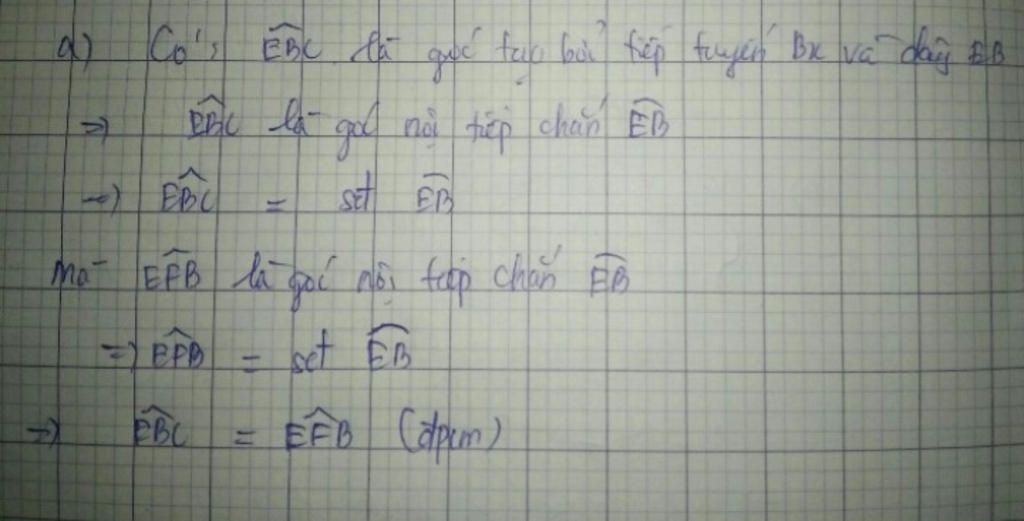 a) Có: EBC là góc tạo bởi tiếp tuyến Bx và dây EB
=> EBC là góc nội tiếp chắn EB
=> EBC = sđ EB
Mà EFB là góc nội tiếp chắn EB
=> EFB = sđ EB
=> EBC = EFB (đpcm)